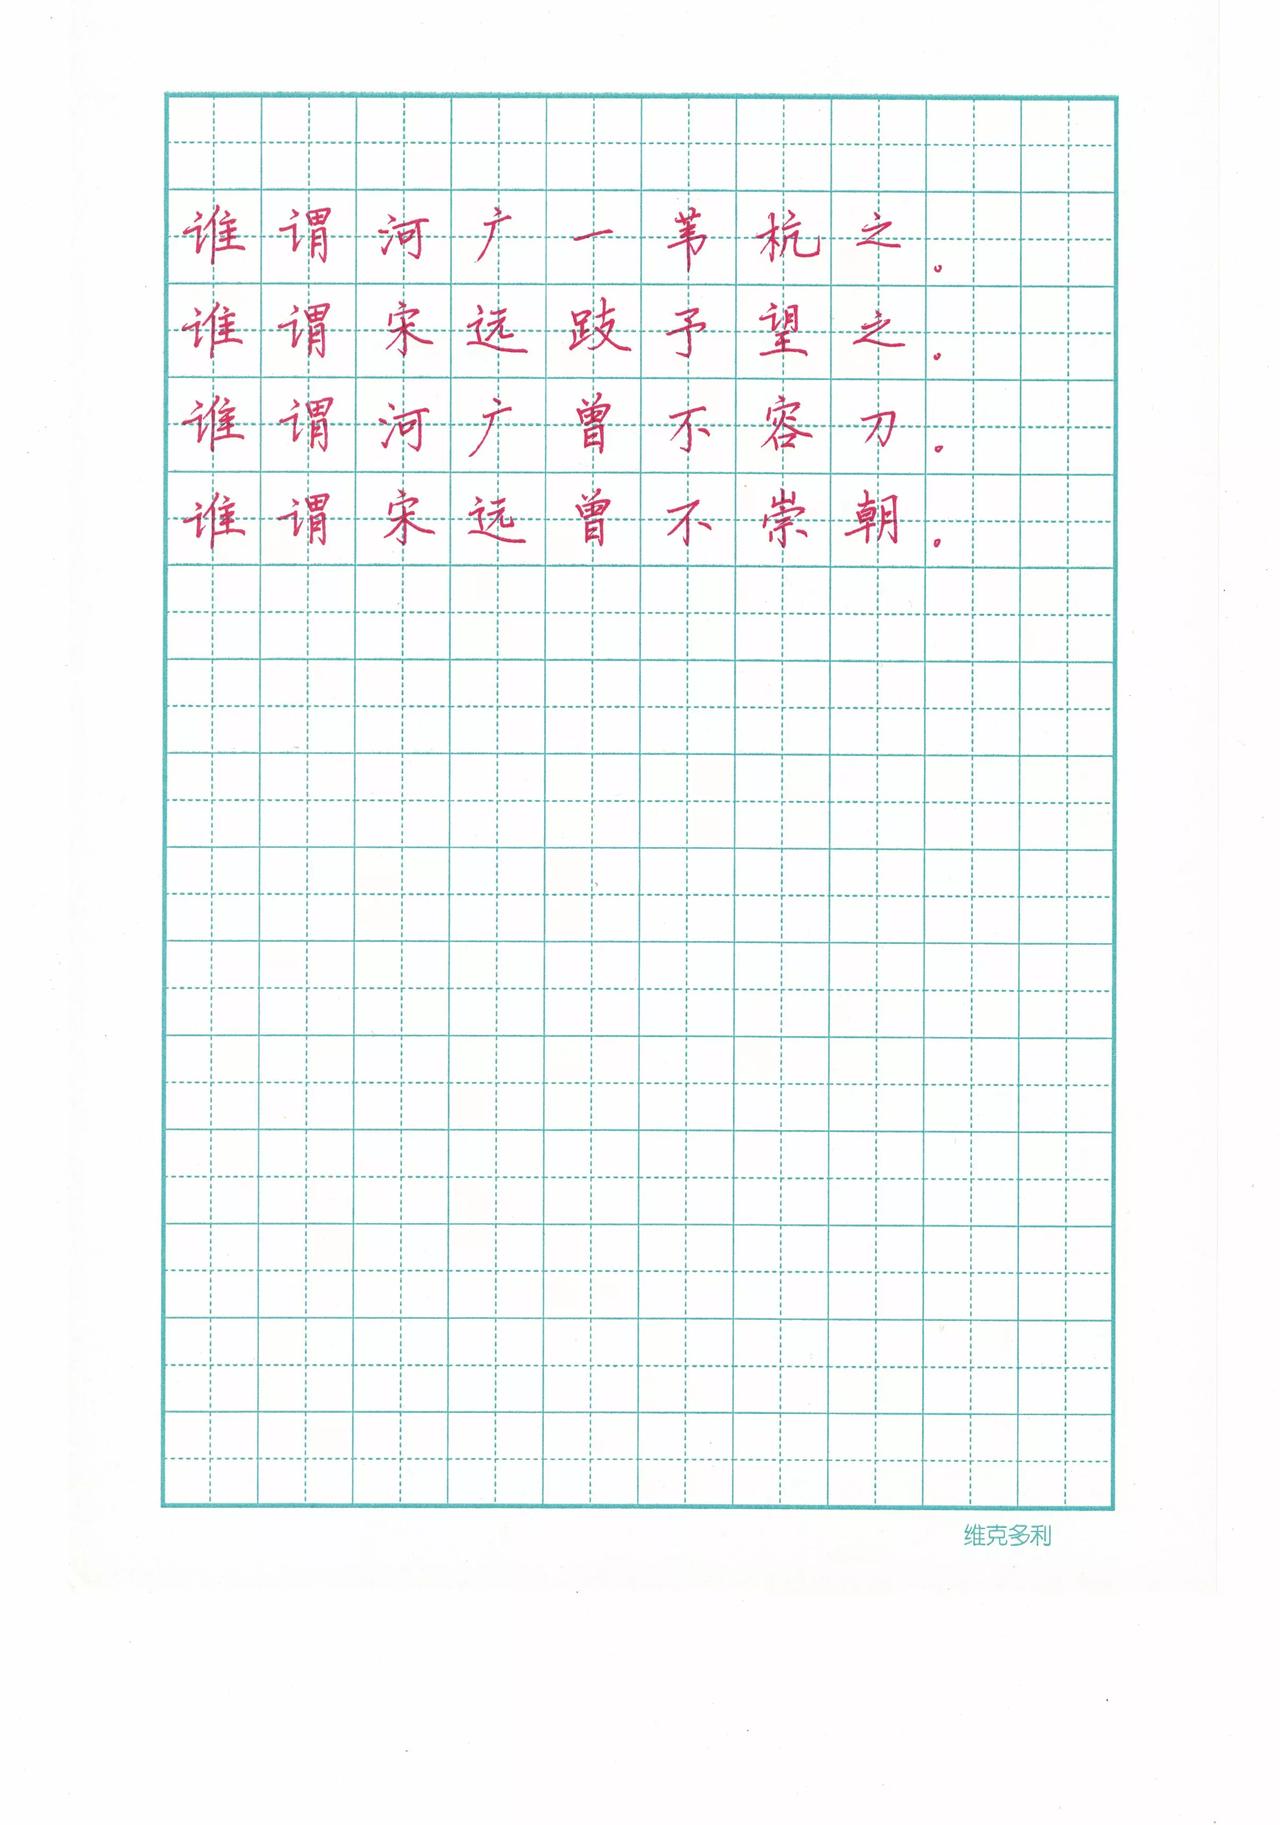 谁谓河广一苇杭之。
谁谓宋远跂予望之。
谁谓河广曾不容刀。
谁谓宋远曾不崇朝。
维克多利